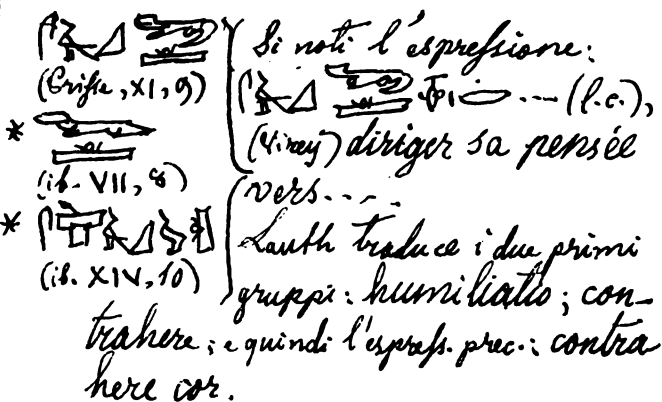 (Prisse, XI, 9)
*
(ib. VII, 8)
*
(ib. XIV, 10)
Si noti l'espressione:
.... (l.c.),
(Virey) diriger sa pensée
vers....
Lauth traduce i due primi
gruppi: humiliatio; con-
trahere; e quindi l'espress. prec.: contra
here cor.